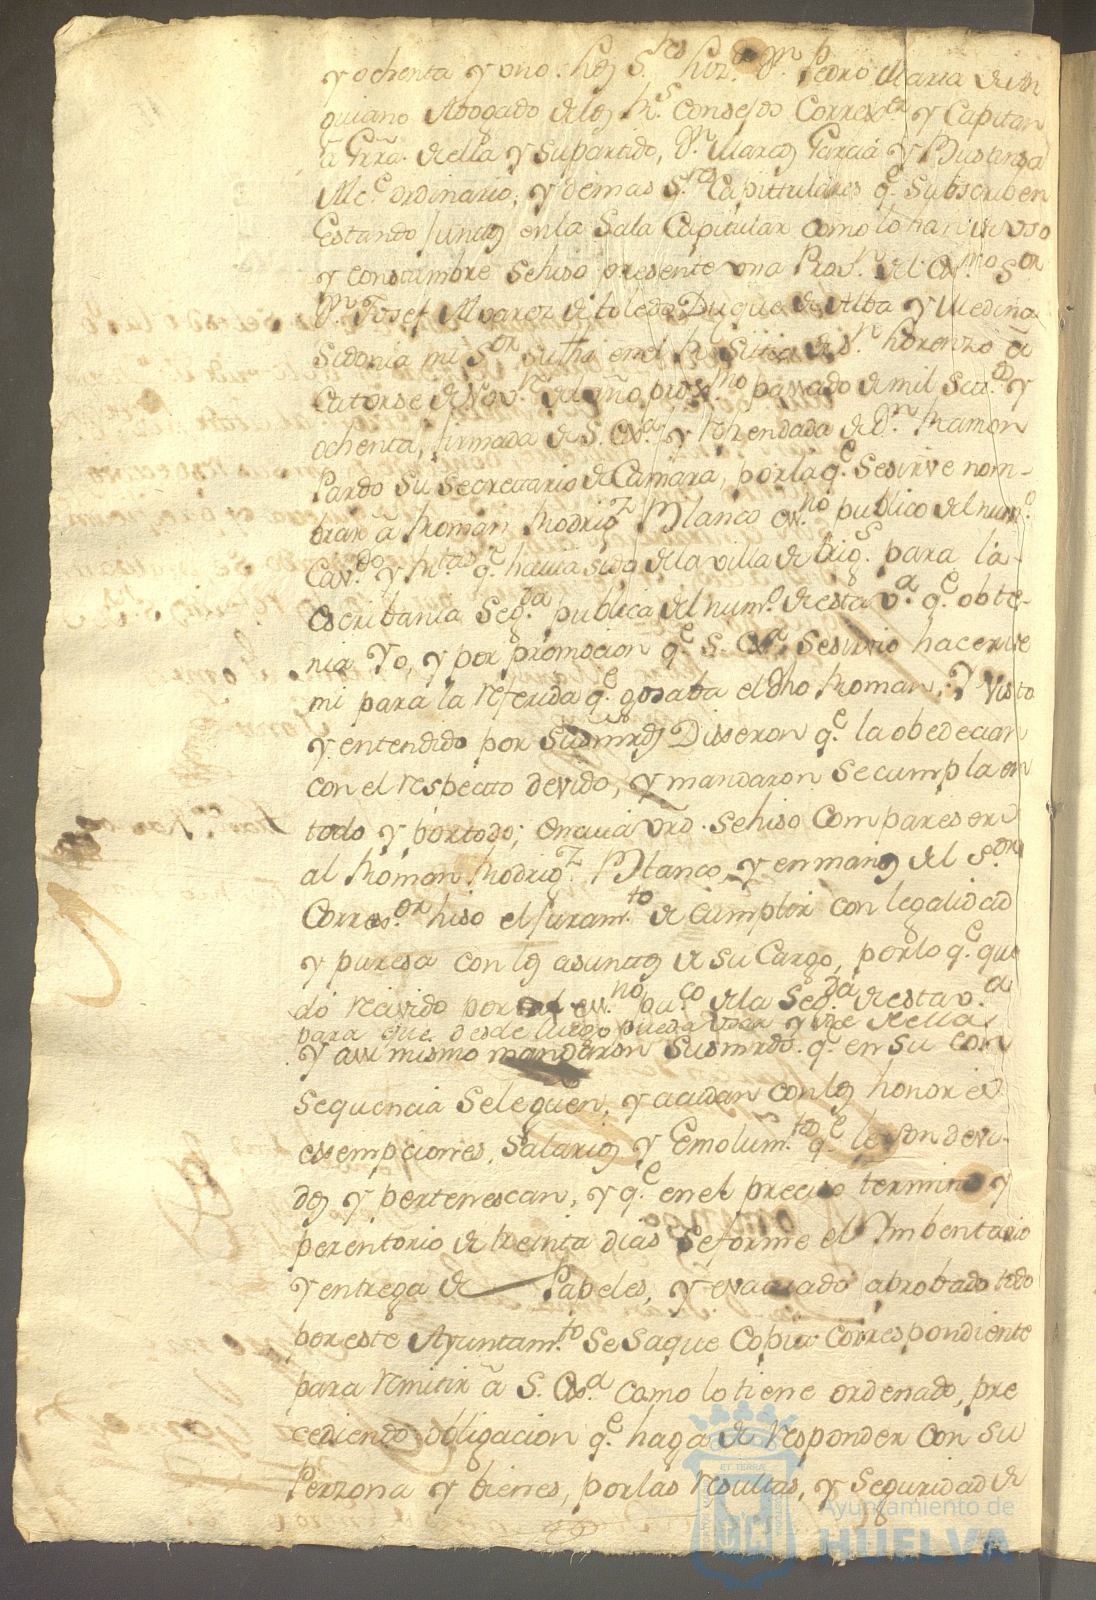 y ochenta y uno. los S.res Liz.do D.n Pedro Maria de An
guiano Abogado de los R.s Consejos Correx.or y Capitan
à Grrà. de ella y su partido, D.n Marcos Garcia y Bustinza
Alc.e ordinario, y demas S.res Capittulares q.e subscriben
Estando juntos en la Sala Capitular como lo han de uso
y constumbre se hiso presente una Prov.n del Ex.mo S.or
D.n Josef Alvarez de toledo Duque de Alba y Medina
Sidonia mi S.or su fha en el R.l Sitio de S.n Lorenzo à
Catorse de Nov.re del año prox.mo passado de mil Set.os y
ochenta, firmada de S. Ex.a y refrendada de D.n Ramon
Pardo su Secretario de Camara, por la q.e se sirve nom-
brar à Roman Rodrig.z Blanco ess.no publico del num.o
Cav.do y R.tas q.e havia sido de la villa de trig.s para la
escribania Seg.da publica del num.o de esta v.a q.e obte-
nia Yo, y por promocion q.e S. Ex.a se sirvio hacer de
mi para la referida q.e gosaba el dho Roman; Y visto
y entendido por sus mrds Disseron q.e la obedecian
con el respecto devido, y mandaron se cumpla en
todo y por todo; en cuia vrd. se hiso compareser
al Roman Rodrig.z Blanco, y en manos del S.or
Corres.or hiso el juram.to de cumplir con legalidad
y puresa con los asuntos de su Cargo, por lo q.e que
dó recivido por tal ess.no pu.co de la Seg.da de esta v.a
para que desde luego pueda usar y use de ella
y assi mismo mandaron sus mrds. q.e en su con
sequencia se le guen, y acudan con los honores
essempciones, Salarios y Emolum.tos q.e le son devi-
dos y pertenescan, y q.e en el preciso termino y
perentorio de treinta dias se forme el Ymbentario
y entrega de Papeles, y evacuado aprobado todo
por este Ayuntam.to se saque Copia correspondiente
para remitir à S. Ex.a como lo tiene ordenado, pre
cediendo obligacion q.e haga de responder con su
Perzona y bienes, por las resultas, y seguridad de
Ayuntamiento de
HUELVA